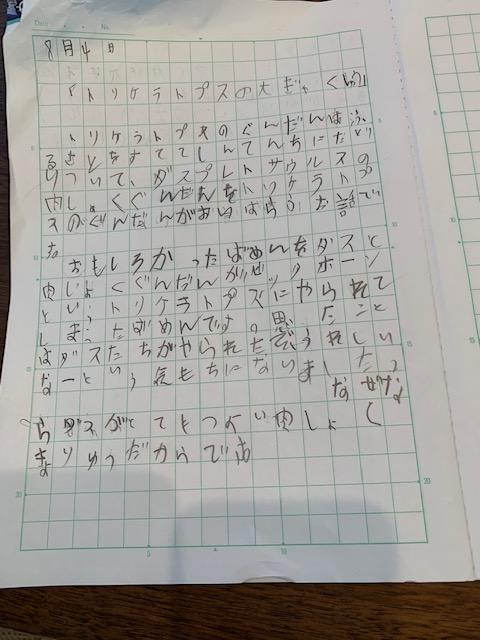 Date
No.
8月4日
「トリケラトプスの大ぎゃくしゅう」
トリケラトプスのぐんだんはふ
るさとをすててしんてんちにたどり
ついて、ダスプレトサウルスの
肉しょくぐんだんをトリケラトプ
スのぐんだんがおいはらうお話で
す
おもしろかったばめんをダスと
肉しょくぐんだんがビッグホーン
というトリケラトプスにやられて
しまったばめんです。思ったこと
はダスたちがやられたぞうれしい
なーという気もちになりました。
なぜな
らダスがとてもつよい肉しょく
きょりゅうだからです
5
10
15
20
5
10
20